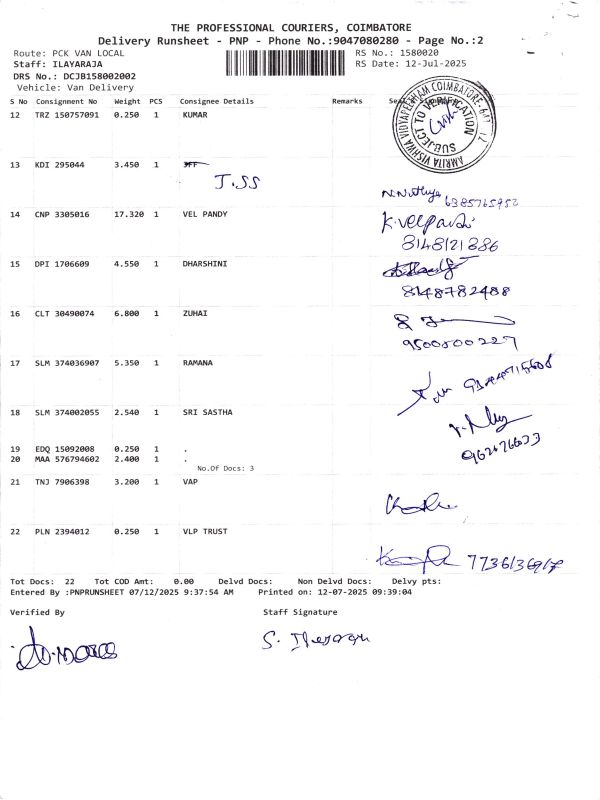 THE PROFESSIONAL COURIERS, COIMBATORE
Delivery Runsheet - PNP - Phone No.:9047080280 - Page No.:2
Route: PCK VAN LOCAL RS No.: 1580020
Staff: ILAYARAJA RS Date: 12-Jul-2025
DRS No.: DCJB158002002
Vehicle: Van Delivery
S No Consignment No Weight PCS Consignee Details Remarks
AMRITA VISHWA VIDYAPEETHAM COIMBATORE
SUBJECT TO VERIFICATION
12 TRZ 150757091 0.250 1 KUMAR
13 KDI 295044 3.450 1
J.SS
6385765952
14 CNP 3305016 17.320 1 VEL PANDY
K.velpandi
8148121886
15 DPI 1706609 4.550 1 DHARSHINI
8148782488
16 CLT 30490074 6.800 1 ZUHAI
9500500227
17 SLM 374036907 5.350 1 RAMANA
18 SLM 374002055 2.540 1 SRI SASTHA
19 EDQ 15092008 0.250 1 .
20 MAA 576794602 2.400 1 .
No.Of Docs: 3
21 TNJ 7906398 3.200 1 VAP
22 PLN 2394012 0.250 1 VLP TRUST
Tot Docs: 22 Tot COD Amt: 0.00 Delvd Docs: Non Delvd Docs: Delvy pts:
Entered By :PNPRUNSHEET 07/12/2025 9:37:54 AM Printed on: 12-07-2025 09:39:04
Verified By Staff Signature